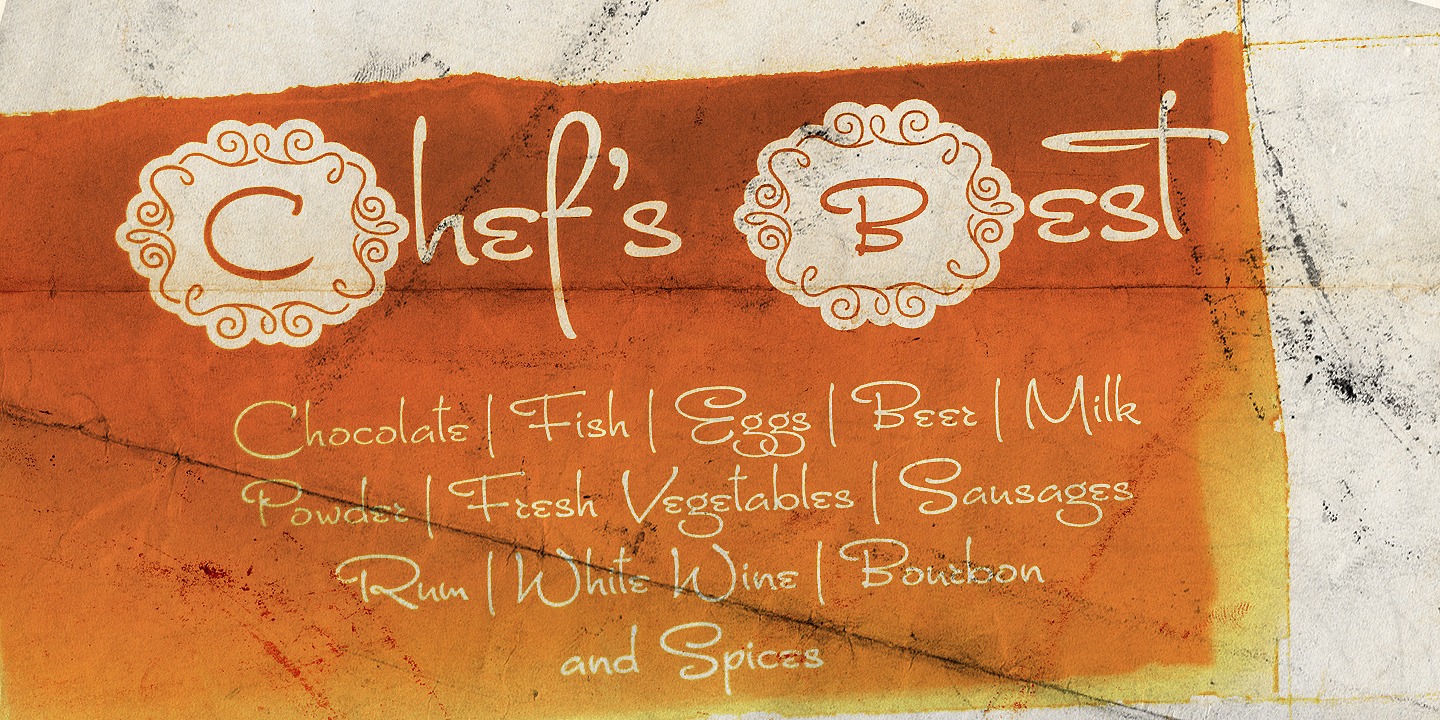 Chef's Best
Chocolate | Fish | Eggs | Beer | Milk
Powder | Fresh Vegetables | Sausages
Rum | White Wine | Bourbon
and Spices